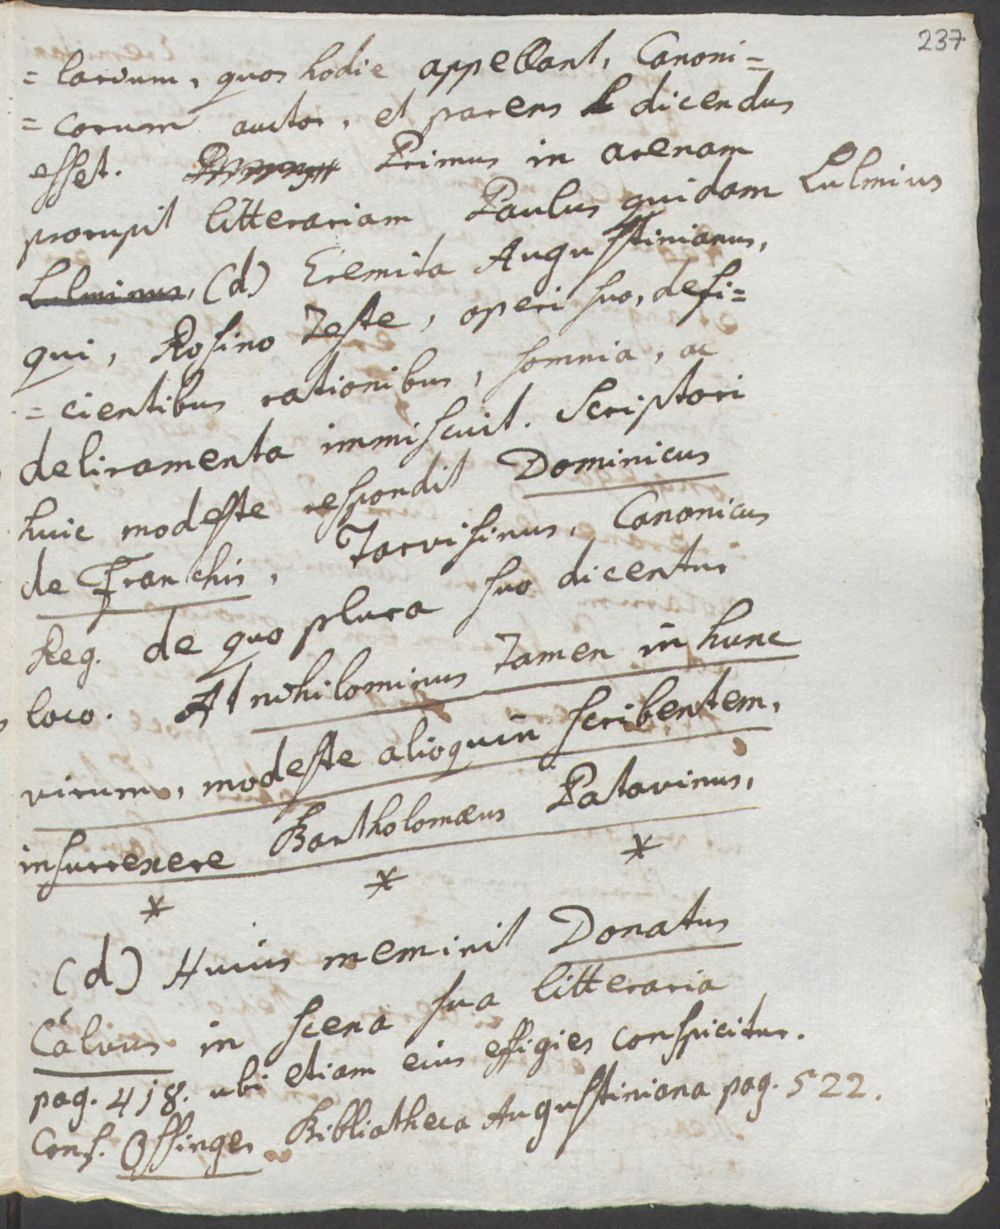 237
= larium, quos hodie appellant, Canoni=
= corum auctor, et parens dicendus
esset. Primus in arenam
prorupit litterariam Paulus quidam Lulmius
Lulminus, (d) Eremita Augustinianus,
qui, Rosino teste, operi suo, defi=
= cientibus rationibus, somnia, ac
deliramenta immiscuit. Scriptori
huic modeste respondit Dominicus
de Franchis, Tarvisinus, Canonicus
Reg. de quo plura suo dicentur
loco. At nihilominus tamen in hunc
virum, modeste alioquin scribentem,
insurrexere Bartholomæus Patavinus,
* * *
(d) Huius meminit Donatus
Calvus in scena sua litteraria
pag. 418. ubi etiam eius effigies conspicitur.
Conf. Ossinger Bibliatheca Augustiniana pag. 522.